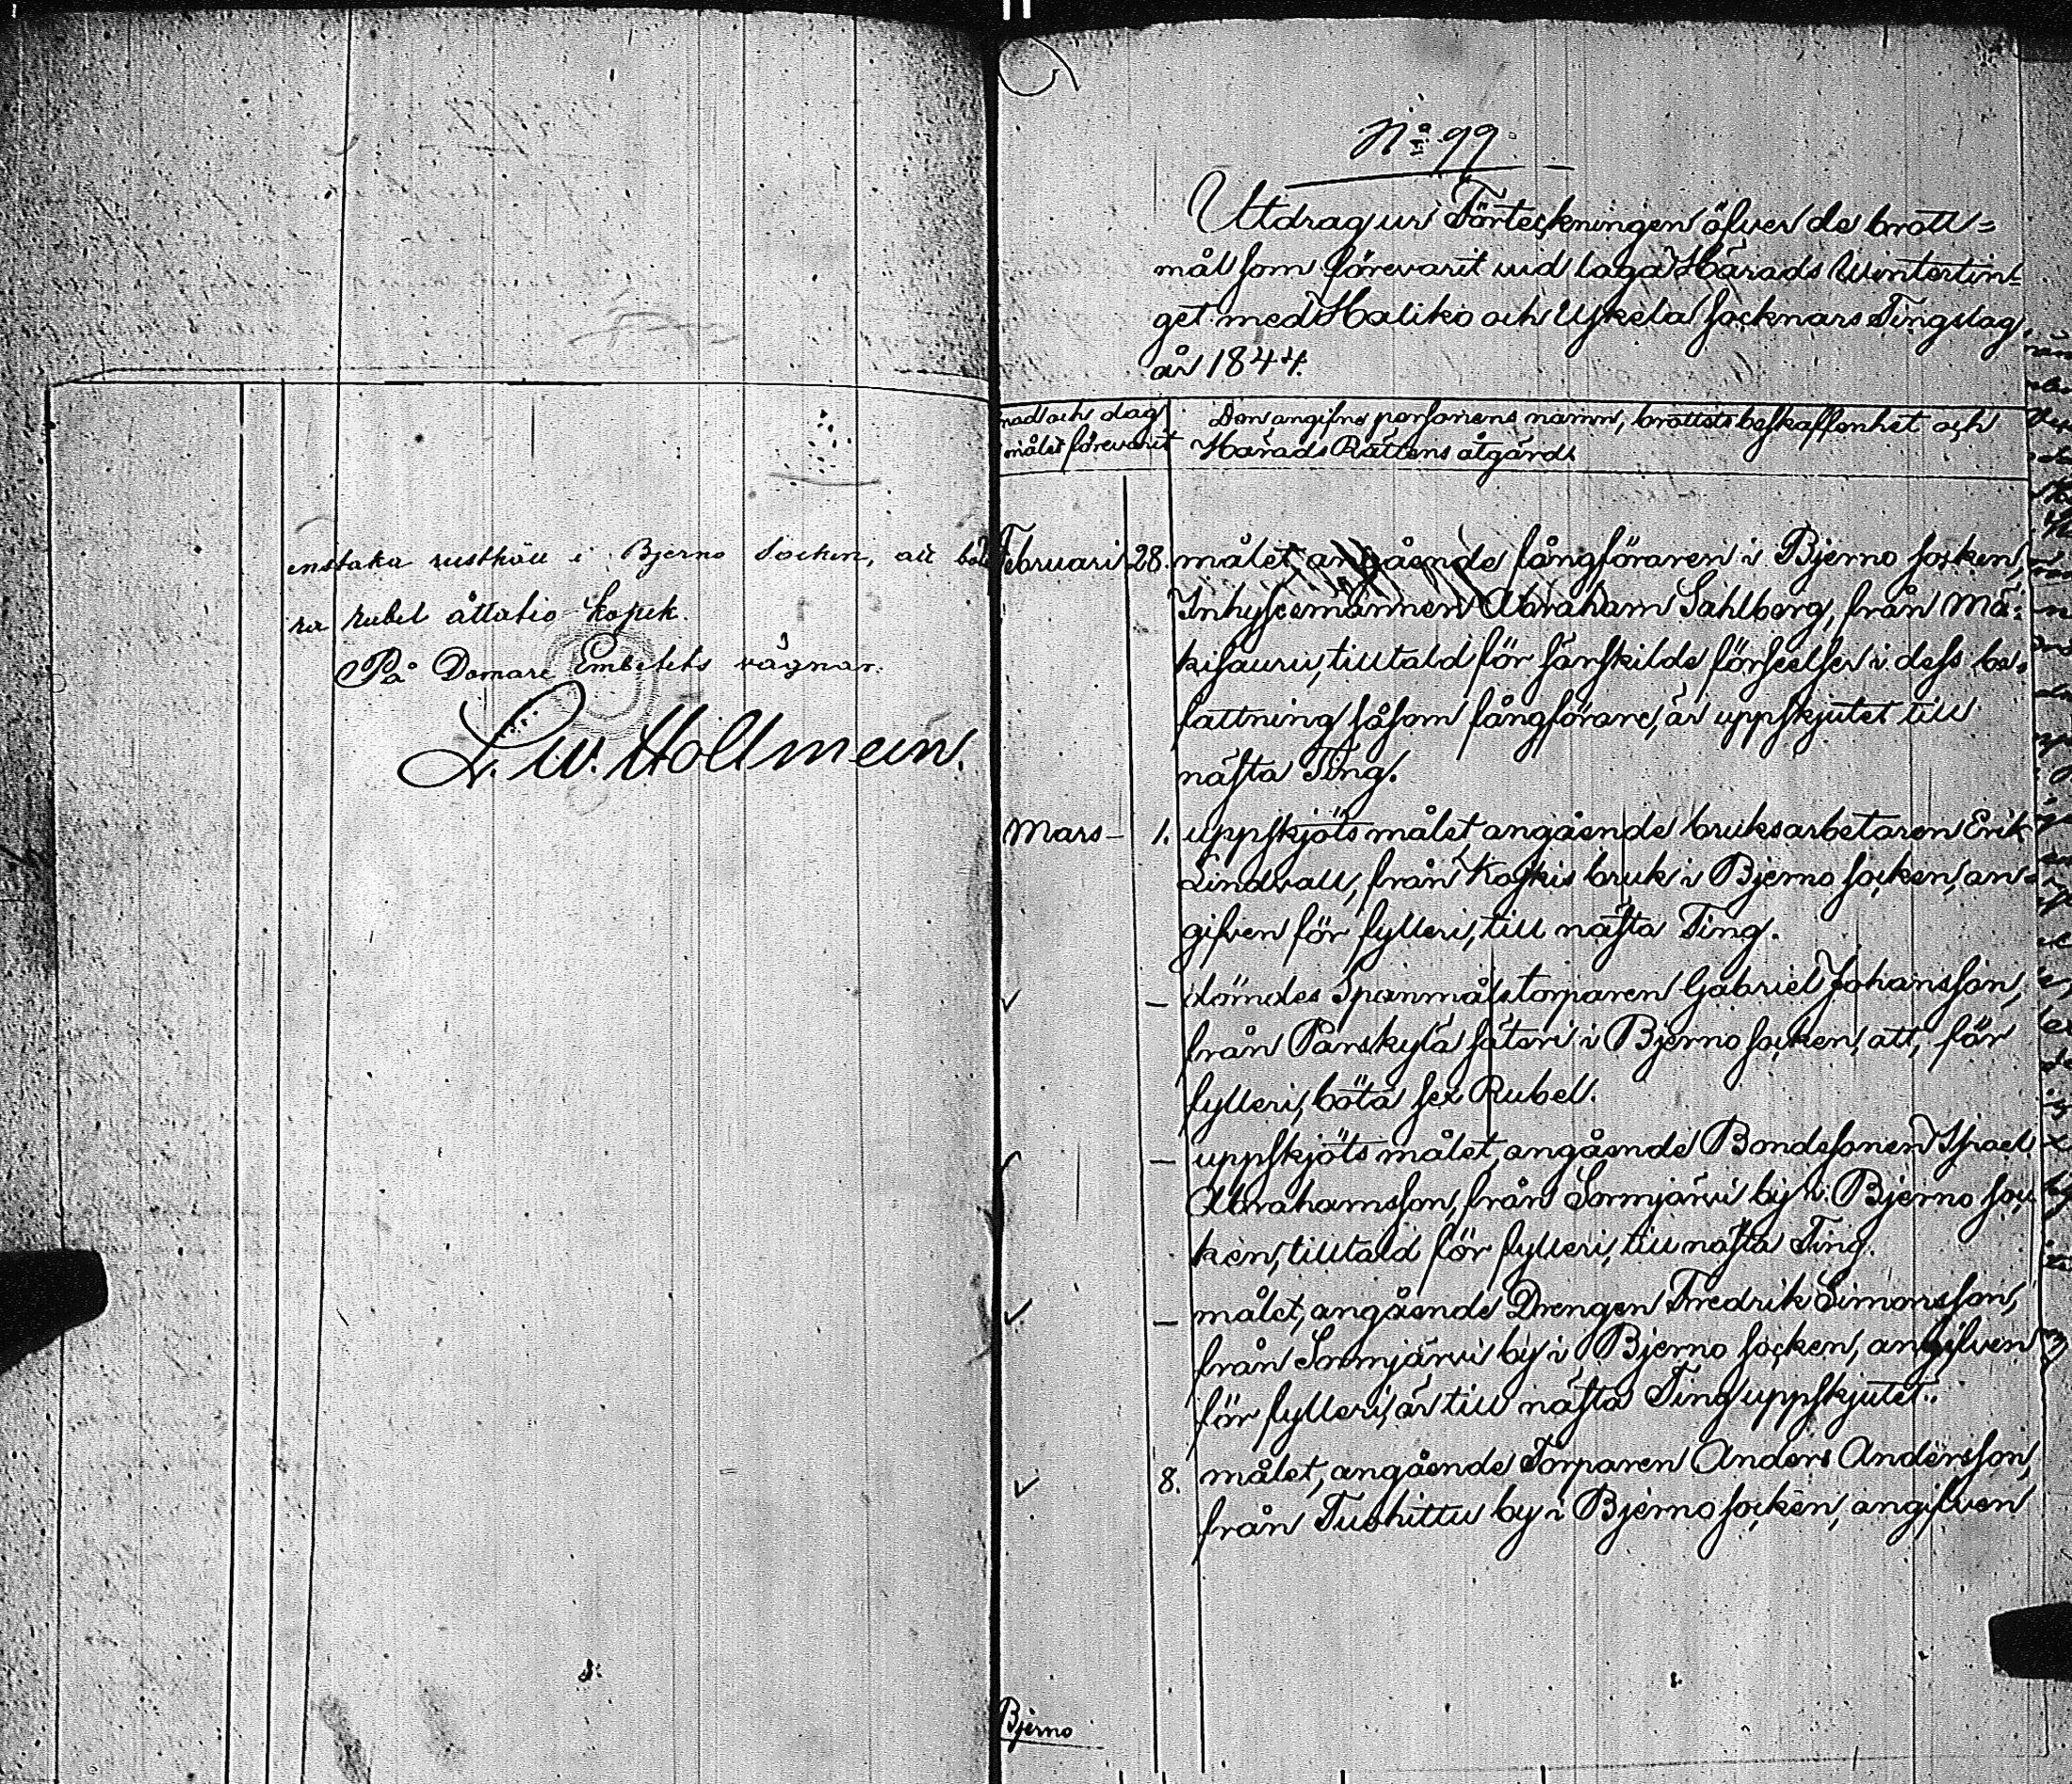 enstaka rusthåll i Bjerno Socken, att
rubel åttatio kopek.
På Domare Embetets vägnar.
L. W. Hollmein.
No 99.
Utdrag ur Förteckningen öfver de brott=
mål som förevarit vid laga Härads Wintertin=
get med Haliko och Uskela Socknars Tingslag,
år 1844.
nad och dag
målet förevarit
Den angifne personens namn, brottets beskaffenhet och
Härads Rättens åtgärd.
Februari 28. målet angående fångföraren i Bjerno socken,
Inhysesmannen Abraham Sahlberg, från Mä=
kisauru, tilltald för särskilde förseelser i dess be=
fattning såsom fångförare, är uppskjutet till
nästa Ting.
Mars – 1. uppskjöts målet angående bruksarbetaren Erik
Lindvall, från Koskis bruk i Bjerno socken, an=
gifven för fylleri, till nästa Ting.
– dömdes Spanmålstorparen Gabriel Johansson,
från Pärskylä säteri i Bjerno socken, att, för
fylleri, böta sex Rubel.
– uppskjöts målet, angående Bondesonen Israel
Abrahamsson, från Sormjärvi by i Bjerno soc
ken, tilltald för fylleri, till nästa Ting.
– målet, angående Drengen Fredrik Simonsson,
från Sormjärvi by i Bjerno socken, angifven
för fylleri, är till nästa Ting uppskjutet.
8. målet, angående Torparen Anders Andersson,
från Tuohittu by i Bjerno socken, angifven
Bjerno